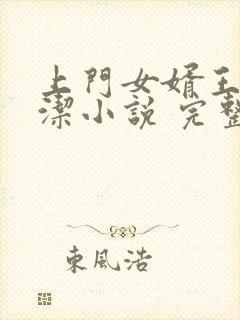 上門女婿王
潔小説 完整
東風浩